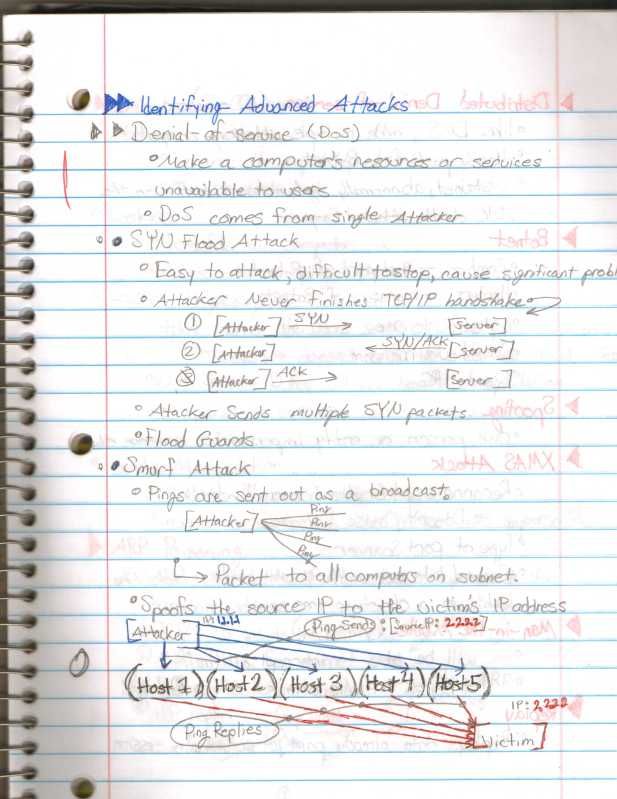 Identifying Advanced Attacks
Denial-of-service (DoS)
Make a computer's resources or services
unavailable to users
DoS comes from single Attacker
SYN Flood Attack
Easy to attack, difficult to stop, cause significant probl
Attacker Never finishes TCP/IP handshake
1 [Attacker] SYN [server]
2 [Attacker] SYN/ACK [server]
3 [Attacker] ACK [server]
Atacker Sends multiple SYN packets
Flood Guards
Smurf Attack
Pings are sent out as a broadcast.
Ping
[Attacker] Ping
Ping
Ping
Packet to all computers on subnet.
Spoofs the source IP to the victim's IP address
[Attacker] IP: 1.1.1.1 Ping Sends: [source IP: 2.2.2.2]
(Host 1) (Host 2) (Host 3) (Host 4) (Host 5)
IP: 2.2.2.2
Ping Replies [Victim]